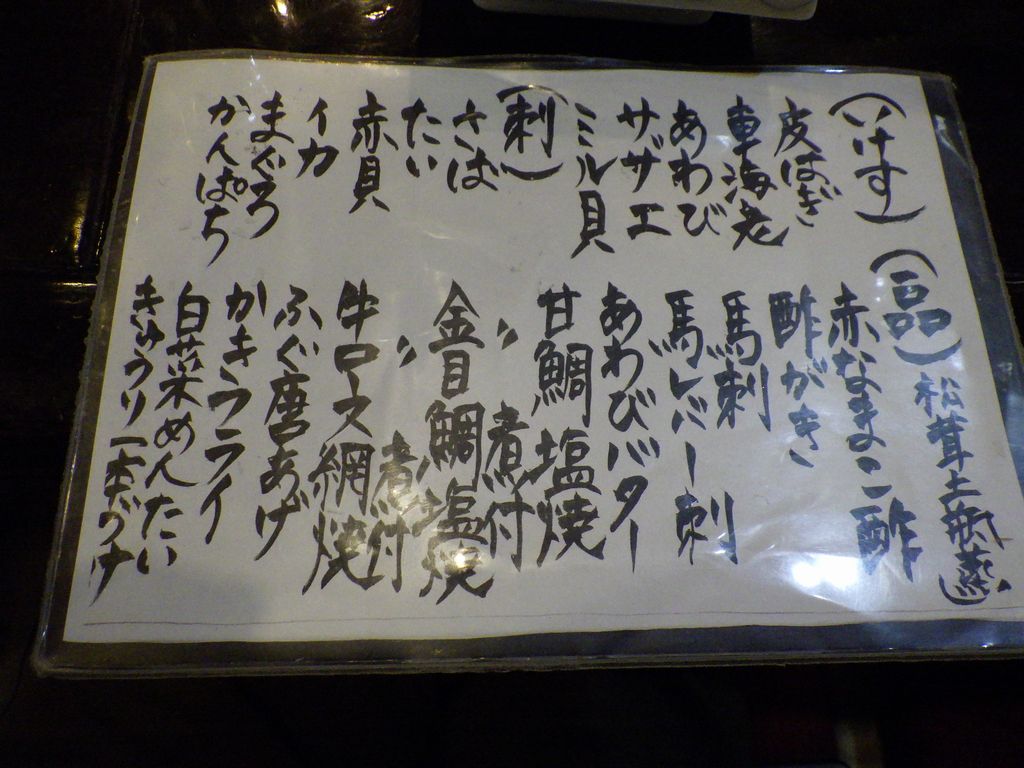 (いけす)
皮はぎ
車海老
あわび
サザエ
ミル貝
(刺し)
さば
たい
赤貝
イカ
まぐろ
かんぱち
(一品) 松茸土瓶蒸し
赤なまこ酢
酢がき
馬刺
馬レバー刺
あわびバター
甘鯛塩焼
〃 煮付
金目鯛塩焼
〃 煮付
牛ロース網焼
ふぐ唐あげ
かきフライ
白菜めんたい
きゅうり一本づけ